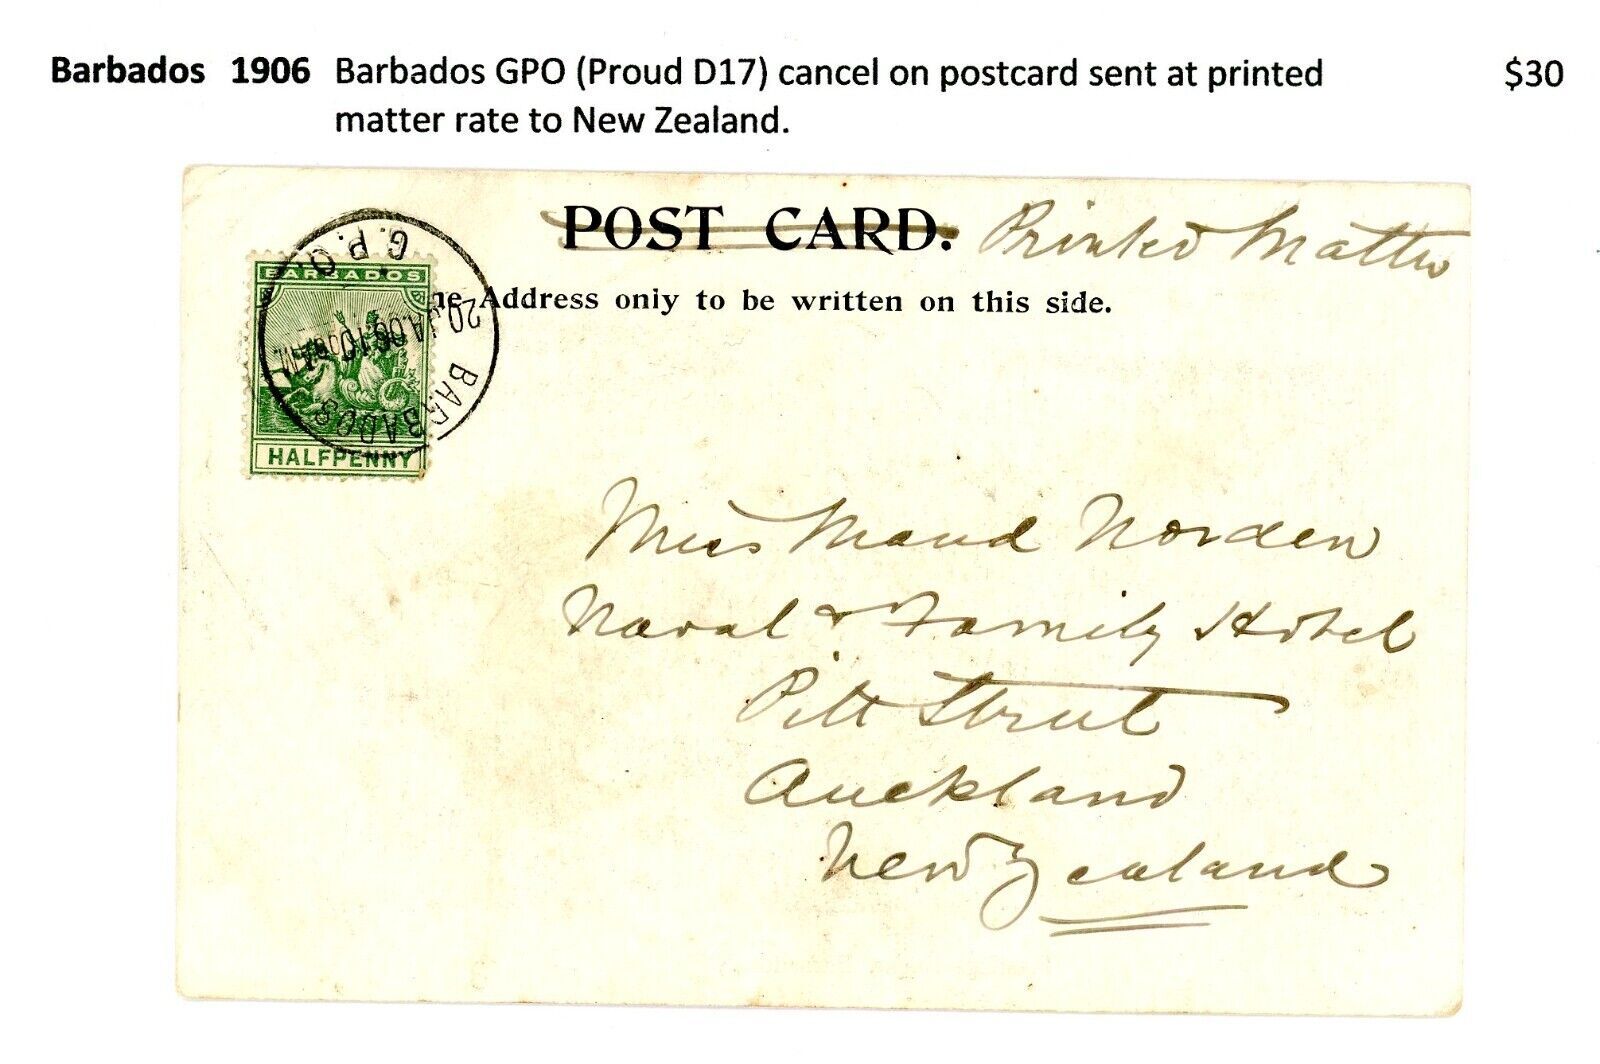 Barbados 1906 Barbados GPO (Proud D17) cancel on postcard sent at printed $30
matter rate to New Zealand.
POST CARD. Printed Matter
ne Address only to be written on this side.
G.P.O.
BARBADOS
20 JA.06
BARBADOS
HALFPENNY
Miss Maud Norden
Naval & Family Hotel
Pitt Street
Auckland
New Zealand